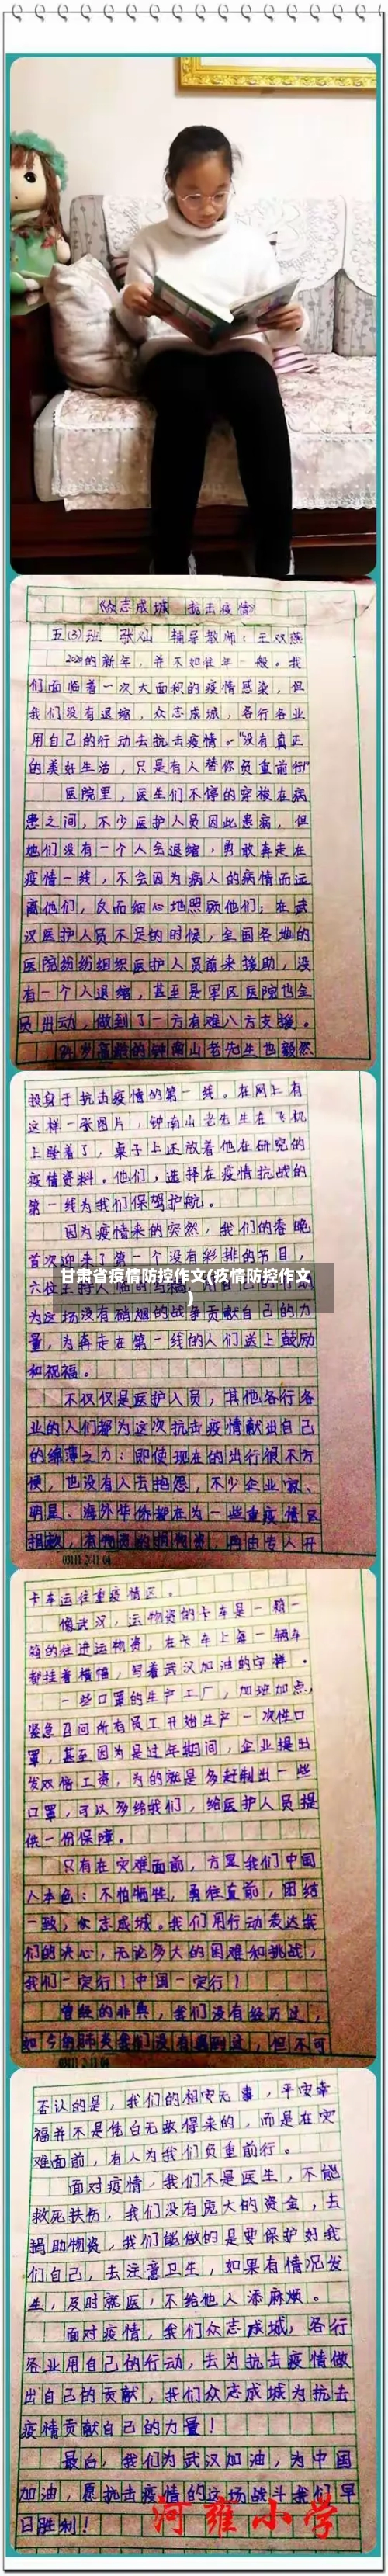 《众志成城 抗击疫情》
五(3)班 张灿 辅导教师：王双燕
2020的新年，并不如往年一般。我
们面临着一次大面积的疫情感染，但
我们没有退缩，众志成城，各行各业
用自己的行动去抗击疫情。“没有真正
的美好生活，只是有人替你负重前行”
医院里，医生们不停的穿梭在病
患之间，不少医护人员因此患病，但
她们没有一个人会退缩，勇敢奔走在
疫情一线，不会因为病人的病情而远
离他们，反而细心地照顾他们；在武
汉医护人员不足的时候，全国各地的
医院纷纷组织医护人员前来援助，没
有一个人退缩，甚至是军区医院也全
员出动，做到了一方有难八方支援。
84岁高龄的钟南山老先生也毅然
投身于抗击疫情的第一线。在网上有
这样一张图片，钟南山老先生在飞机
上睡着了，桌子上还放着他在研究的
疫情资料。他们，选择在疫情抗战的
第一线为我们保驾护航。
因为疫情来的突然，我们的春晚
首次迎来了第一个没有彩排的节目，
六位主持人临时写稿，用自己的行动
甘肃省疫情防控作文(疫情防控作文
)
为这场没有硝烟的战争贡献自己的力
量，为奔走在第一线的人们送上鼓励
和祝福。
不仅仅是医护人员，其他各行各
业的人们都为这次抗击疫情献出自己
的绵薄之力：即使现在的出行很不方
便，也没有人去抱怨，不少企业家、
明星、海外华侨都在为一些重疫情区
捐款，有物资的捐物资，再由专人开
03111 2 11 04
卡车运往重疫情区。
像武汉，运物资的卡车是一箱一
箱的往进运物资，在卡车上每一辆车
都挂着横幅，写着武汉加油的字样。
一些口罩的生产工厂，加班加点，
紧急召回所有员工开始生产一次性口
罩，甚至因为是过年期间，企业提出
发双倍工资，为的就是多赶制出一些
口罩，可以多给我们，给医护人员提
供一份保障。
只有在灾难面前，方显我们中国
人本色：不怕牺牲，勇往直前，团结
一致，众志成城。我们用行动表达我
们的决心，无论多大的困难和挑战，
我们一定行！中国一定行！
曾经的非典，我们没有经历过，
如今的肺炎我们没有遇到过，但不可
03111 2 11 04
否认的是，我们的相安无事，平安幸
福并不是凭白无故得来的，而是在灾
难面前，有人为我们负重前行。
面对疫情，我们不是医生，不能
救死扶伤，我们没有庞大的资金，去
捐助物资，我们能做的是要保护好我
们自己，去注意卫生，如果有情况发
生，及时就医，不给他人添麻烦。
面对疫情，我们众志成城，各行
各业用自己的行动，去为抗击疫情做
出自己的贡献，我们众志成城为抗击
疫情贡献自己的力量！
最后，我们为武汉加油，为中国
加油，愿抗击疫情的这场战斗我们早
日胜利！
河雍小学